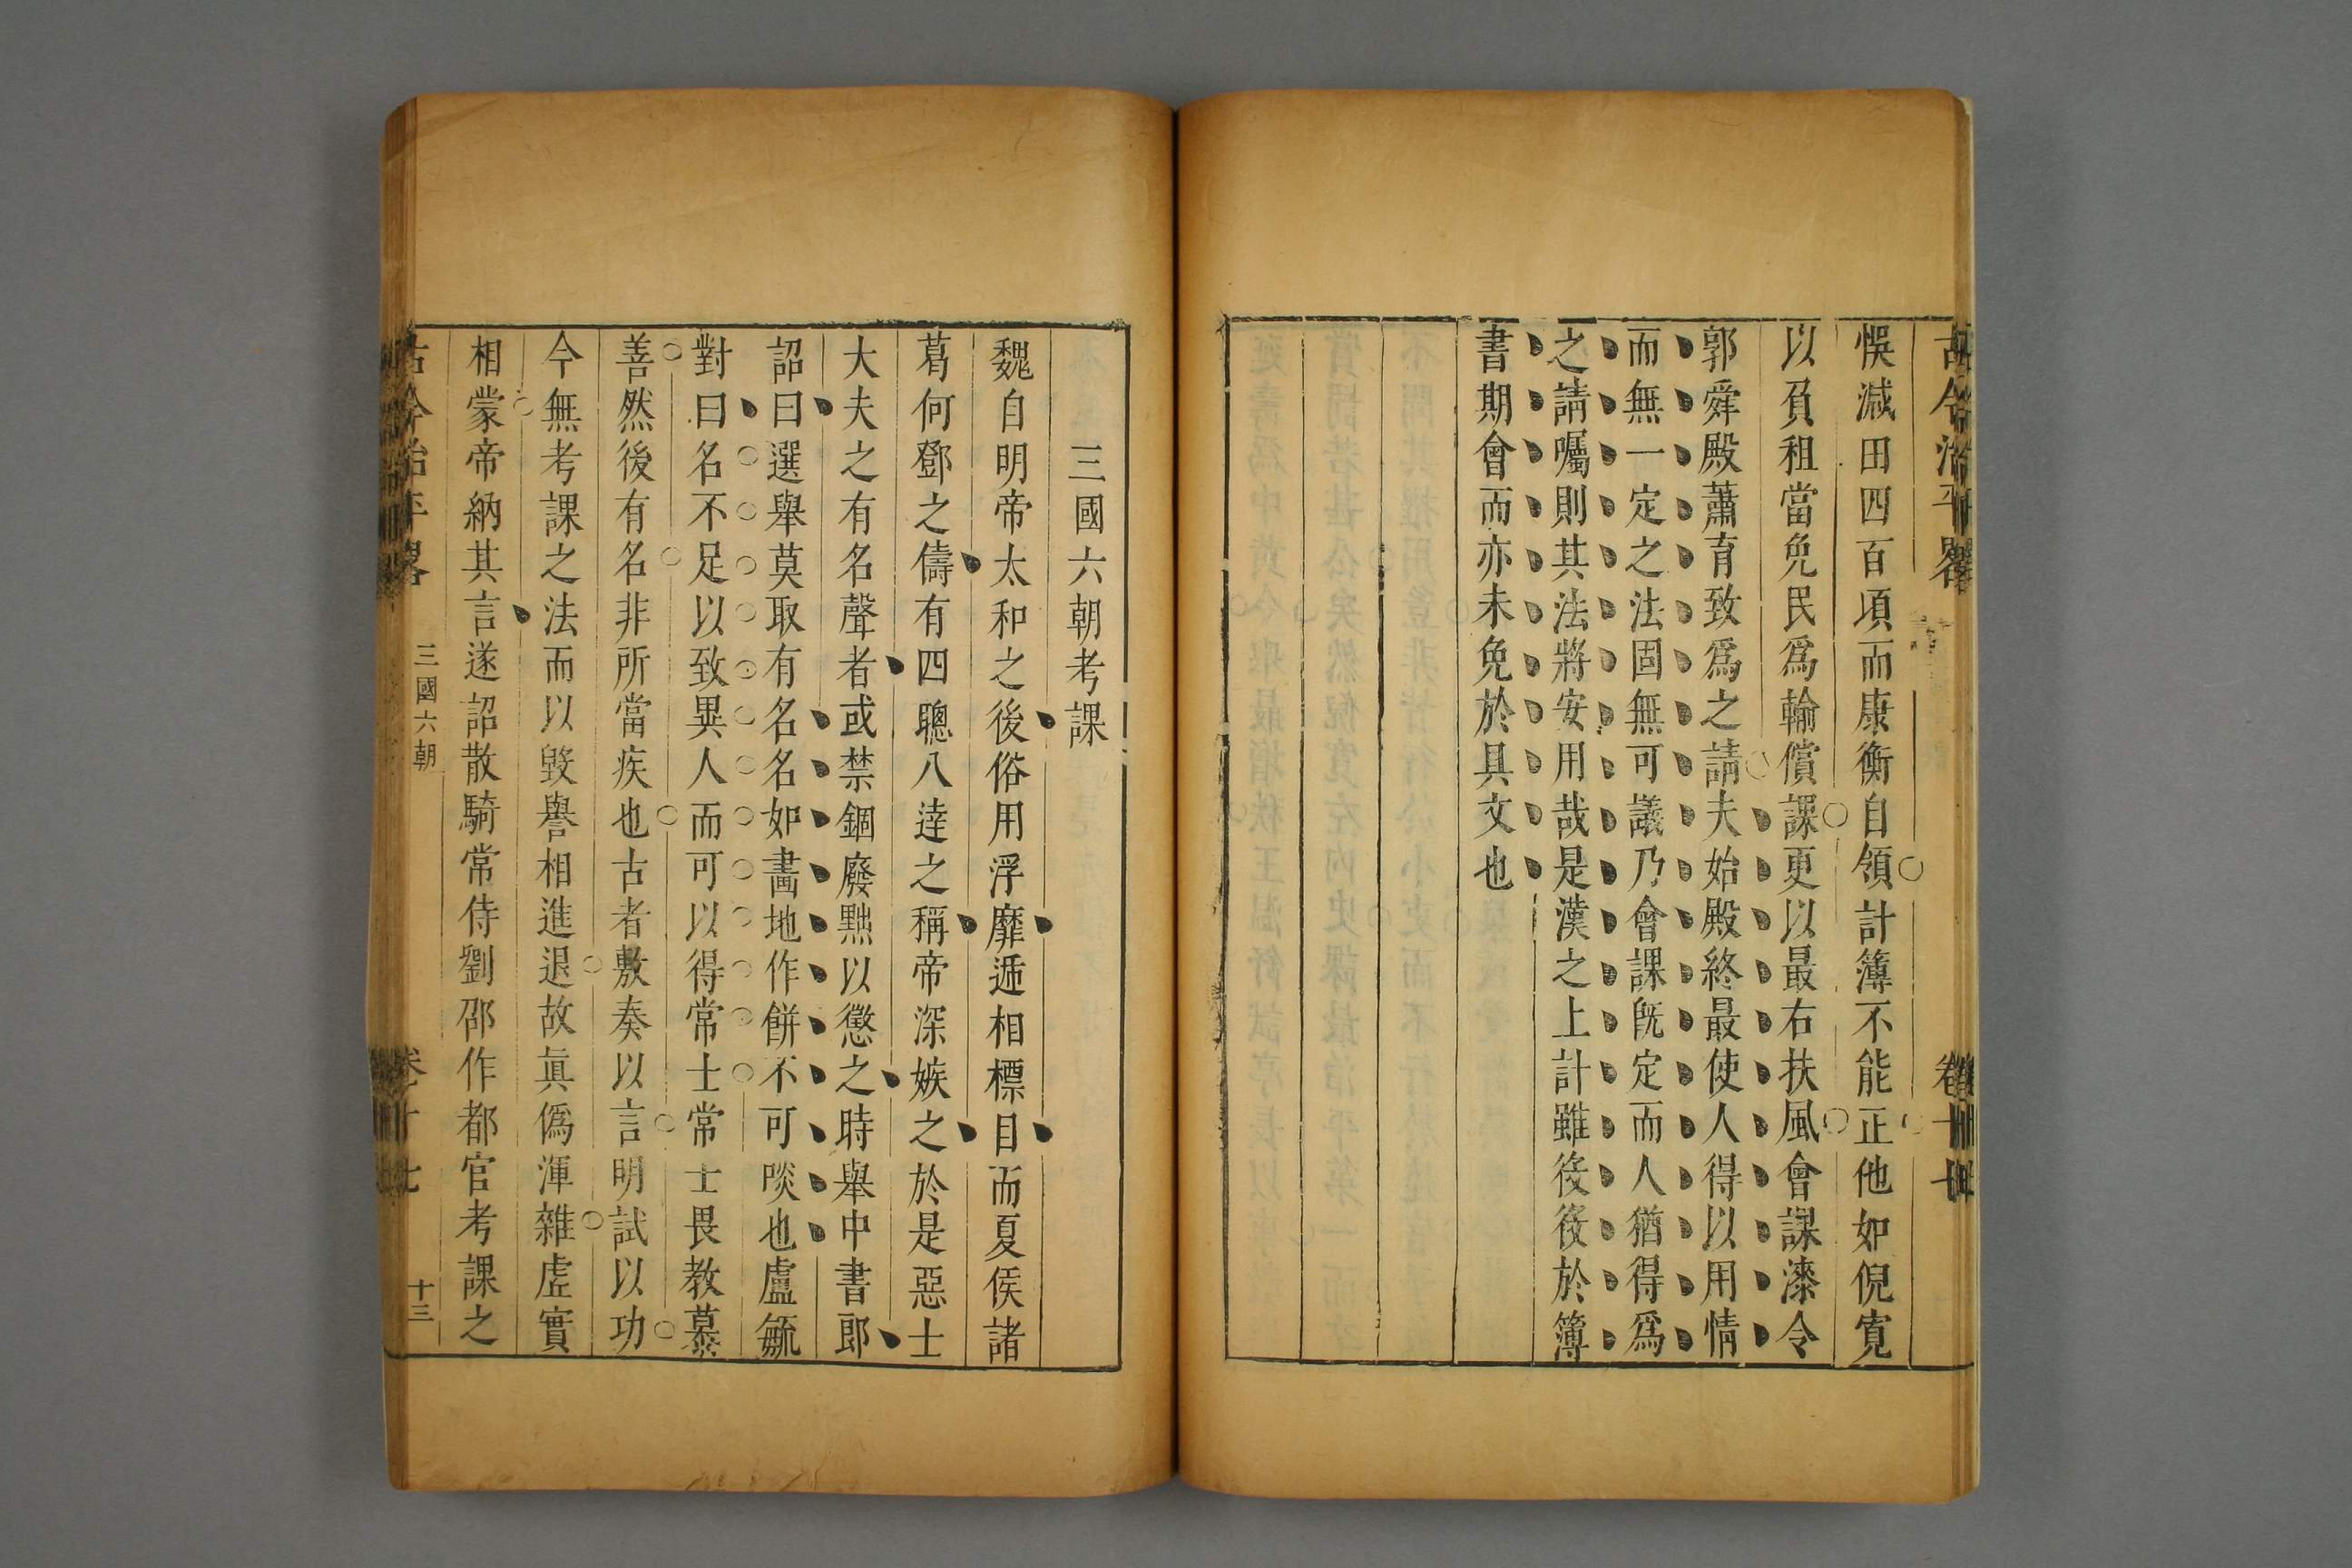 古今治平畧
卷十七
悞減田四百頃而康衡自領計簿不能正他如倪寬
以負租當免民爲輸償課更以最右扶風會課漆令
郭舜殿蕭育致爲之請夫始殿終最使人得以用情
而無一定之法固無可議乃會課旣定而人猶得爲
之請囑則其法將安用哉是漢之上計雖筱筱於簿
書期會而亦未免於具文也
三國六朝考課
魏自明帝太和之後俗用浮靡遞相標目而夏侯諸
葛何鄧之儔有四聰八達之稱帝深嫉之於是惡士
大夫之有名聲者或禁錮廢黜以懲之時舉中書郎
詔曰選舉莫取有名名如畵地作餅不可啖也盧毓
對曰名不足以致異人而可以得常士常士畏教慕
善然後有名非所當疾也古者敷奏以言明試以功
今無考課之法而以毀譽相進退故眞僞渾雜虛實
相蒙帝納其言遂詔散騎常侍劉邵作都官考課之
古今治平畧
三國六朝
卷十七
十三